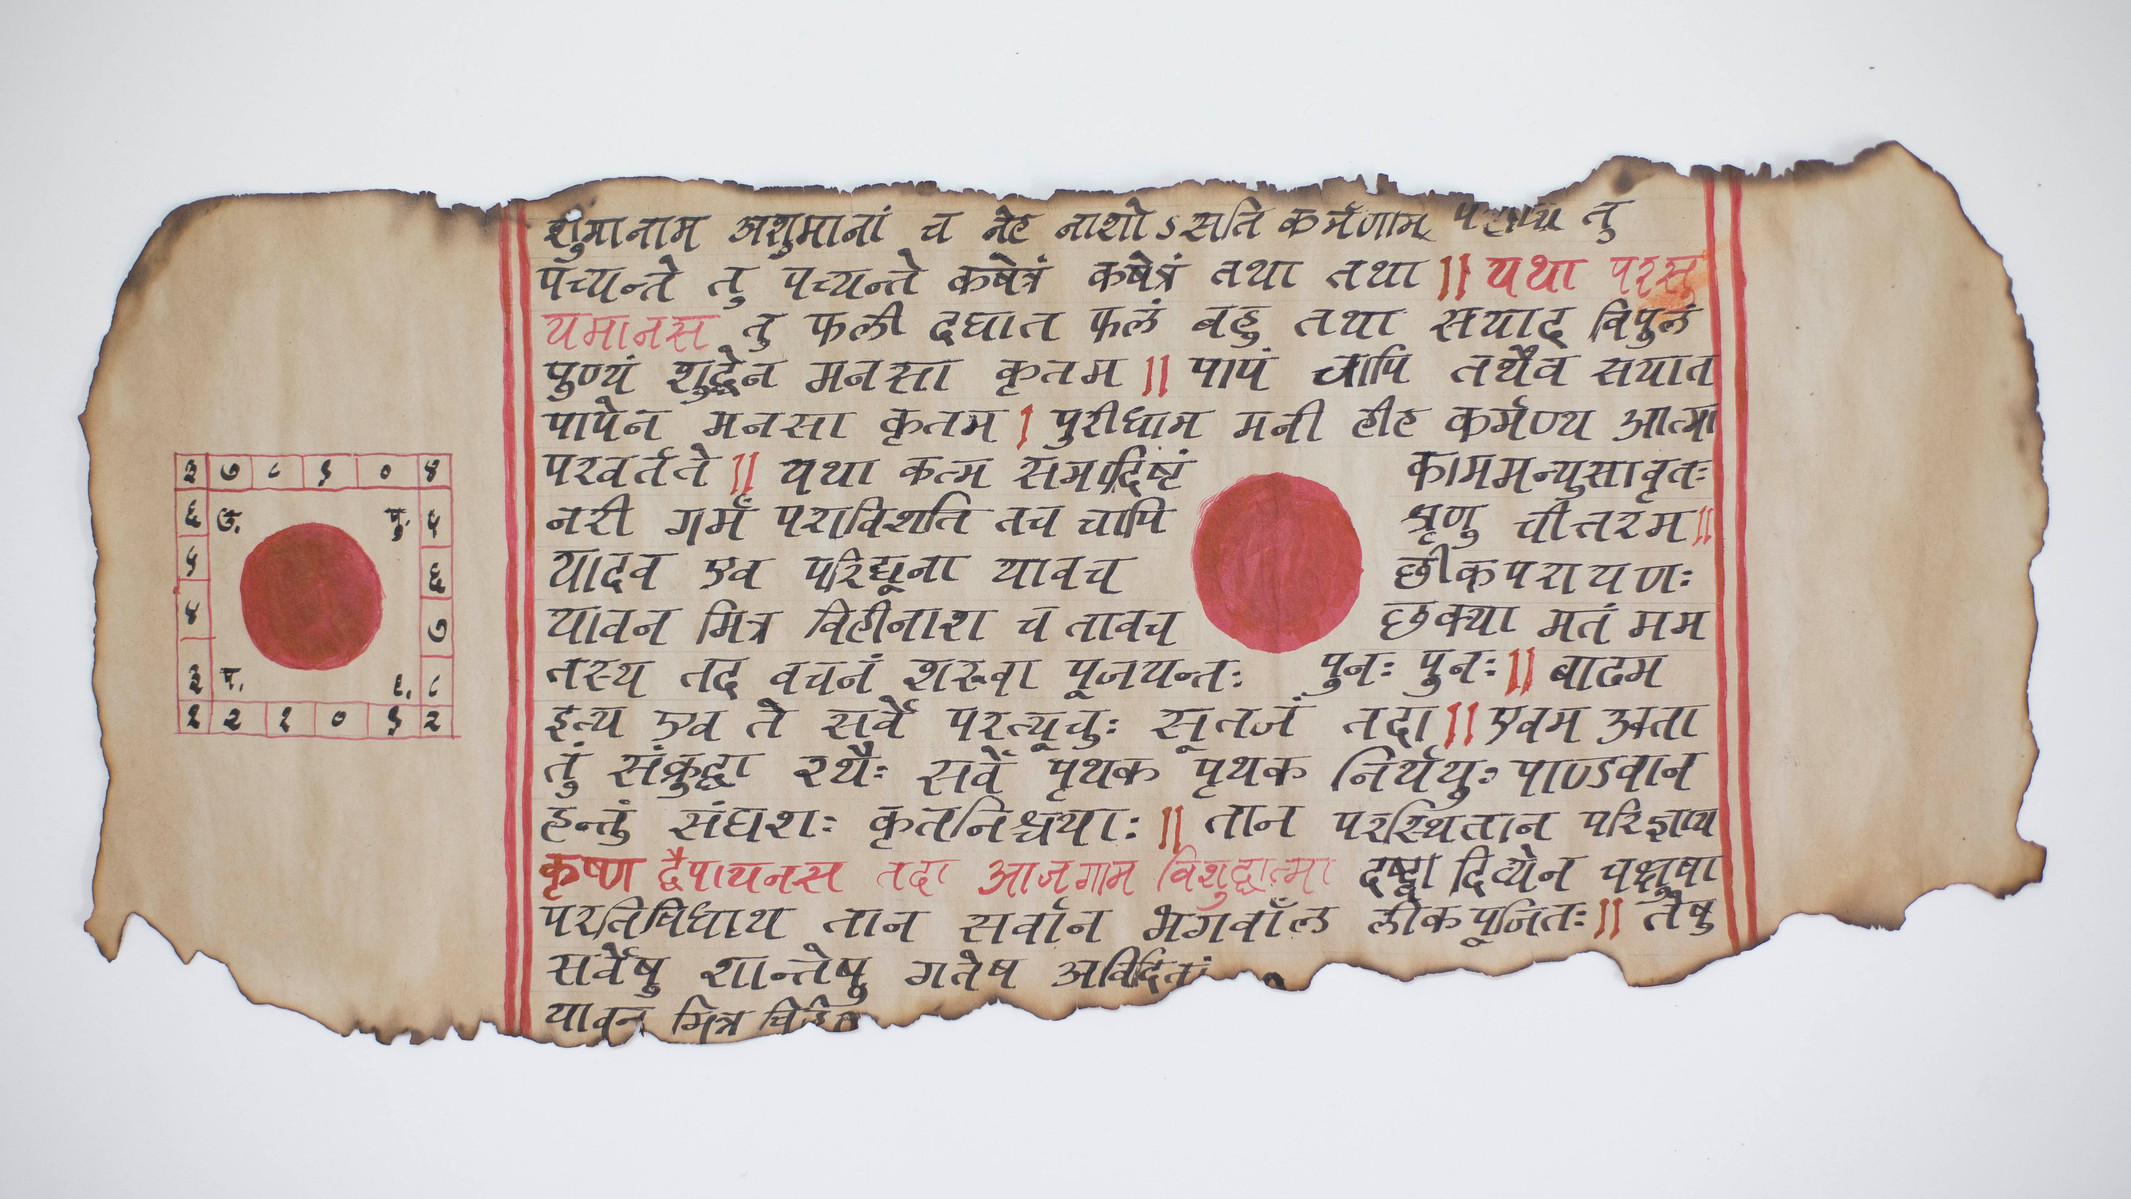 ३ ७ ८ ९ ० ४
६ उ. पु. ५
५ ६
४ ७
३ प. ८
१ २ १ ० ९ २
शुमानाम अशुमानां च नेह नाशोऽसति कर्मणाम तु
पंच्यन्ते तु पच्यन्ते कषेत्रं कषेत्रं तथा तथा || यथा परस
यमानस तु फली दघात फलं बहु तथा सयाद विपुलं
पुण्यं शुद्धेन मनसा कृतम || पापं चापि तथैव सयात
पापेन मनसा कृतम | पुरीधाम मनी हीह कर्मण्य आत्मा
परवर्तते || यथा कत्म समादिष्टं काममन्युसावृतः
नरी गर्मं पराविशति तच चापि श्रृणु चीत्तरम ||
यादव एव परिद्यूना यावच छीकपरायणः
यावन मित्र विहीनाश च तावच छक्या मतं मम
तस्य तद वचनं शरूवा पूजयन्तः पुनः पुनः || बाढम
इत्य एव ते सर्वे परत्यूचुः सूतजं तदा || एवम अक्ता
तुं संक्रुद्धा रथैः सर्वे पृथक पृथक निर्ययुः पाण्डवान
हन्तुं संघशः कृतनिश्चयाः || तान परस्थितान परिज्ञाप्य
कृष्ण द्वैपायनस तदा आजगाम विशुद्धात्मा दष्ट्वा दिव्येन चक्षुषा
परतिषिधाय तान सर्वान भगवाँल लीकपूजितः || तेषु
सर्वेषु शान्तेषु गतेष अविदितां
यावन मित्र